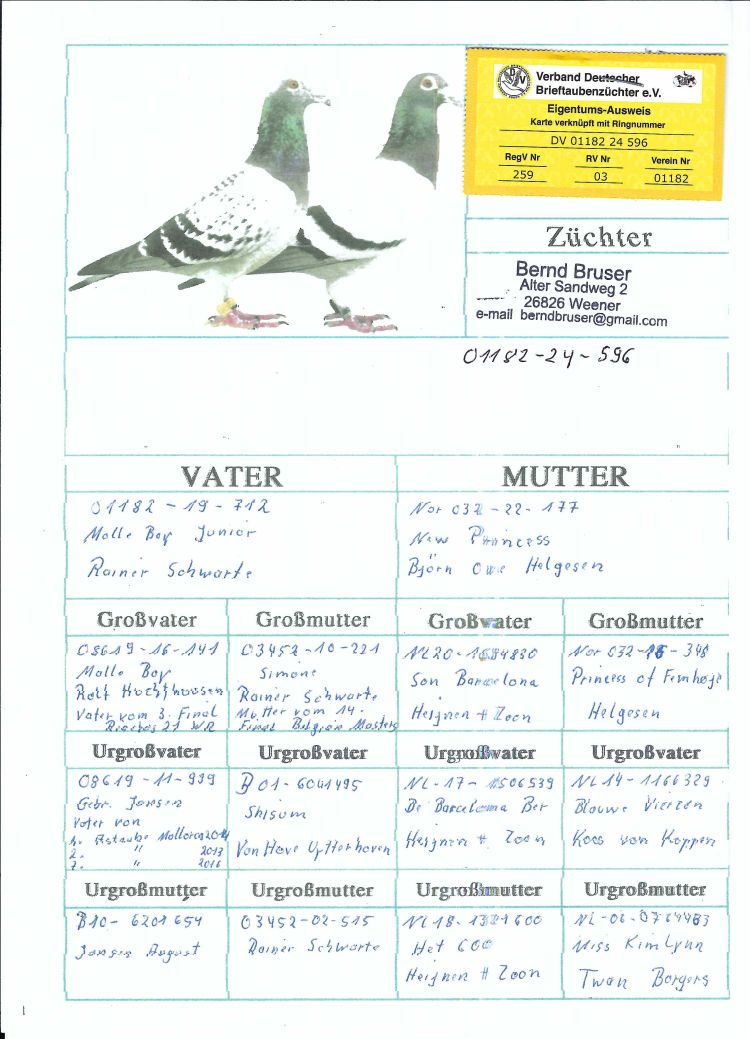 Verband Deutscher
Brieftaubenzüchter e.V.
Eigentums-Ausweis
Karte verknüpft mit Ringnummer
DV 01182 24 596
RegV Nr RV Nr Verein Nr
259 03 01182
Züchter
Bernd Bruser
Alter Sandweg 2
26826 Weener
e-mail berndbruser@gmail.com
01182-24-596
VATER
01182-19-712
Malle Boy Junior
Rainer Schwarte
MUTTER
Nor 032-22-177
New Princess
Björn Owe Helgesen
Großvater
08619-16-141
Malle Boy
Ralf
Vater vom 3. Final
21 WR
Großmutter
03452-10-221
Simone
Rainer Schwarte
Mutter vom 14.
Final Belgian Masters
Großvater
NL20-1684830
Son Barcelona
Heijnen + Zoon
Großmutter
Nor 032-16-348
Princess of Femhøje
Helgesen
Urgroßvater
08619-11-999
Gebr. Jansen
Vater von
1. Astaube Mallorca 2014
2. " 2013
7. " 2016
Urgroßvater
B01-6061495
Shisum
Von Hove Uytterhoeven
Urgroßvater
NL-17-1506539
De Barcelona Ber
Heijnen + Zoon
Urgroßvater
NL14-1166329
Blauwe Vierzen
Koos van Koppen
Urgroßmutter
B10-6201654
Jansen August
Urgroßmutter
03452-02-515
Rainer Schwarte
Urgroßmutter
NL18-1321600
Het 600
Heijnen + Zoon
Urgroßmutter
NL-06-0764483
Miss Kim Lynn
Twan Borgers
1